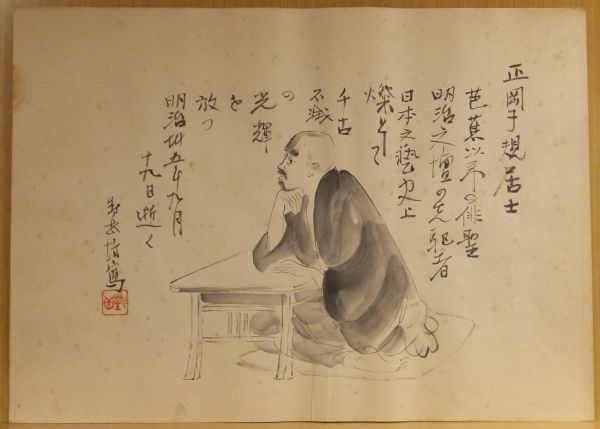 正岡子規居士
芭蕉以来の俳聖
明治文壇の先駆者
日本文藝史上
燦として
千古
不滅
の
光輝
を
放つ
明治卅五年九月
十九日逝く
寫